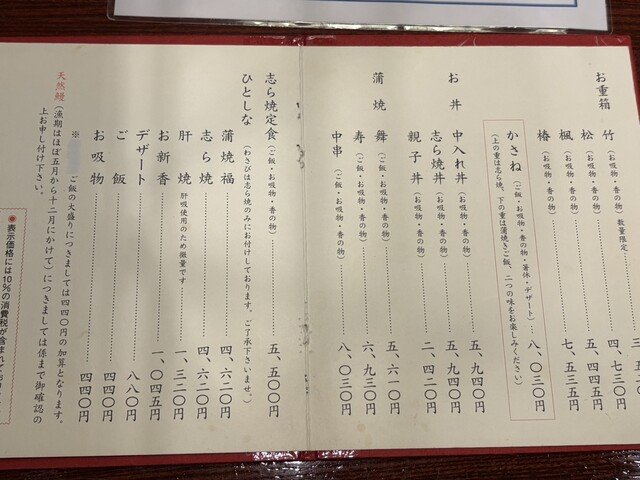 お重箱
竹（お吸物・香の物）数量限定
松（お吸物・香の物）四、七三〇円
楓（お吸物・香の物）五、四四五円
椿（お吸物・香の物）七、五三五円
かさね（ご飯・お吸物・香の物・箸休・デザート）八、〇三〇円
（上の重は志ら焼、下の重は蒲焼きご飯、二つの味をお楽しみください）
お丼
中入れ丼（お吸物・香の物）五、九四〇円
志ら焼丼（お吸物・香の物）五、九四〇円
親子丼（お吸物・香の物）二、四二〇円
蒲焼
舞（ご飯・お吸物・香の物）五、六一〇円
寿（ご飯・お吸物・香の物）六、九三〇円
中串（ご飯・お吸物・香の物）八、〇三〇円
志ら焼定食（ご飯・お吸物・香の物）五、五〇〇円
（わさびは志ら焼のみにお付けしております。ご了承下さいませ。）
ひとしな
蒲焼福 四、六二〇円
志ら焼 四、六二〇円
肝焼 肝吸使用のため微量です 一、三二〇円
お新香 一、〇四五円
デザート 八八〇円
ご飯 四四〇円
お吸物 四四〇円
※ ご飯の大盛りにつきましては四四〇円の加算となります。
天然鰻（漁期はほぼ五月から十二月にかけて）につきましては係まで御確認の
上お申し付け下さい。
◉表示価格には10%の消費税が含まれており